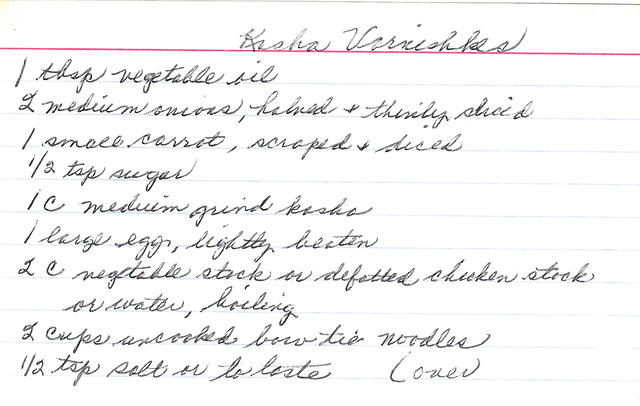 Kasha Varnishkes
1 tbsp vegetable oil
2 medium onions, halved + thinly sliced
1 small carrot, scraped + diced
1/2 tsp sugar
1 C medium grind kasha
1 large egg, lightly beaten
2 C vegetable stock or defatted chicken stock
or water, boiling
2 cups uncooked bow tie noodles
1/2 tsp salt or to taste (over